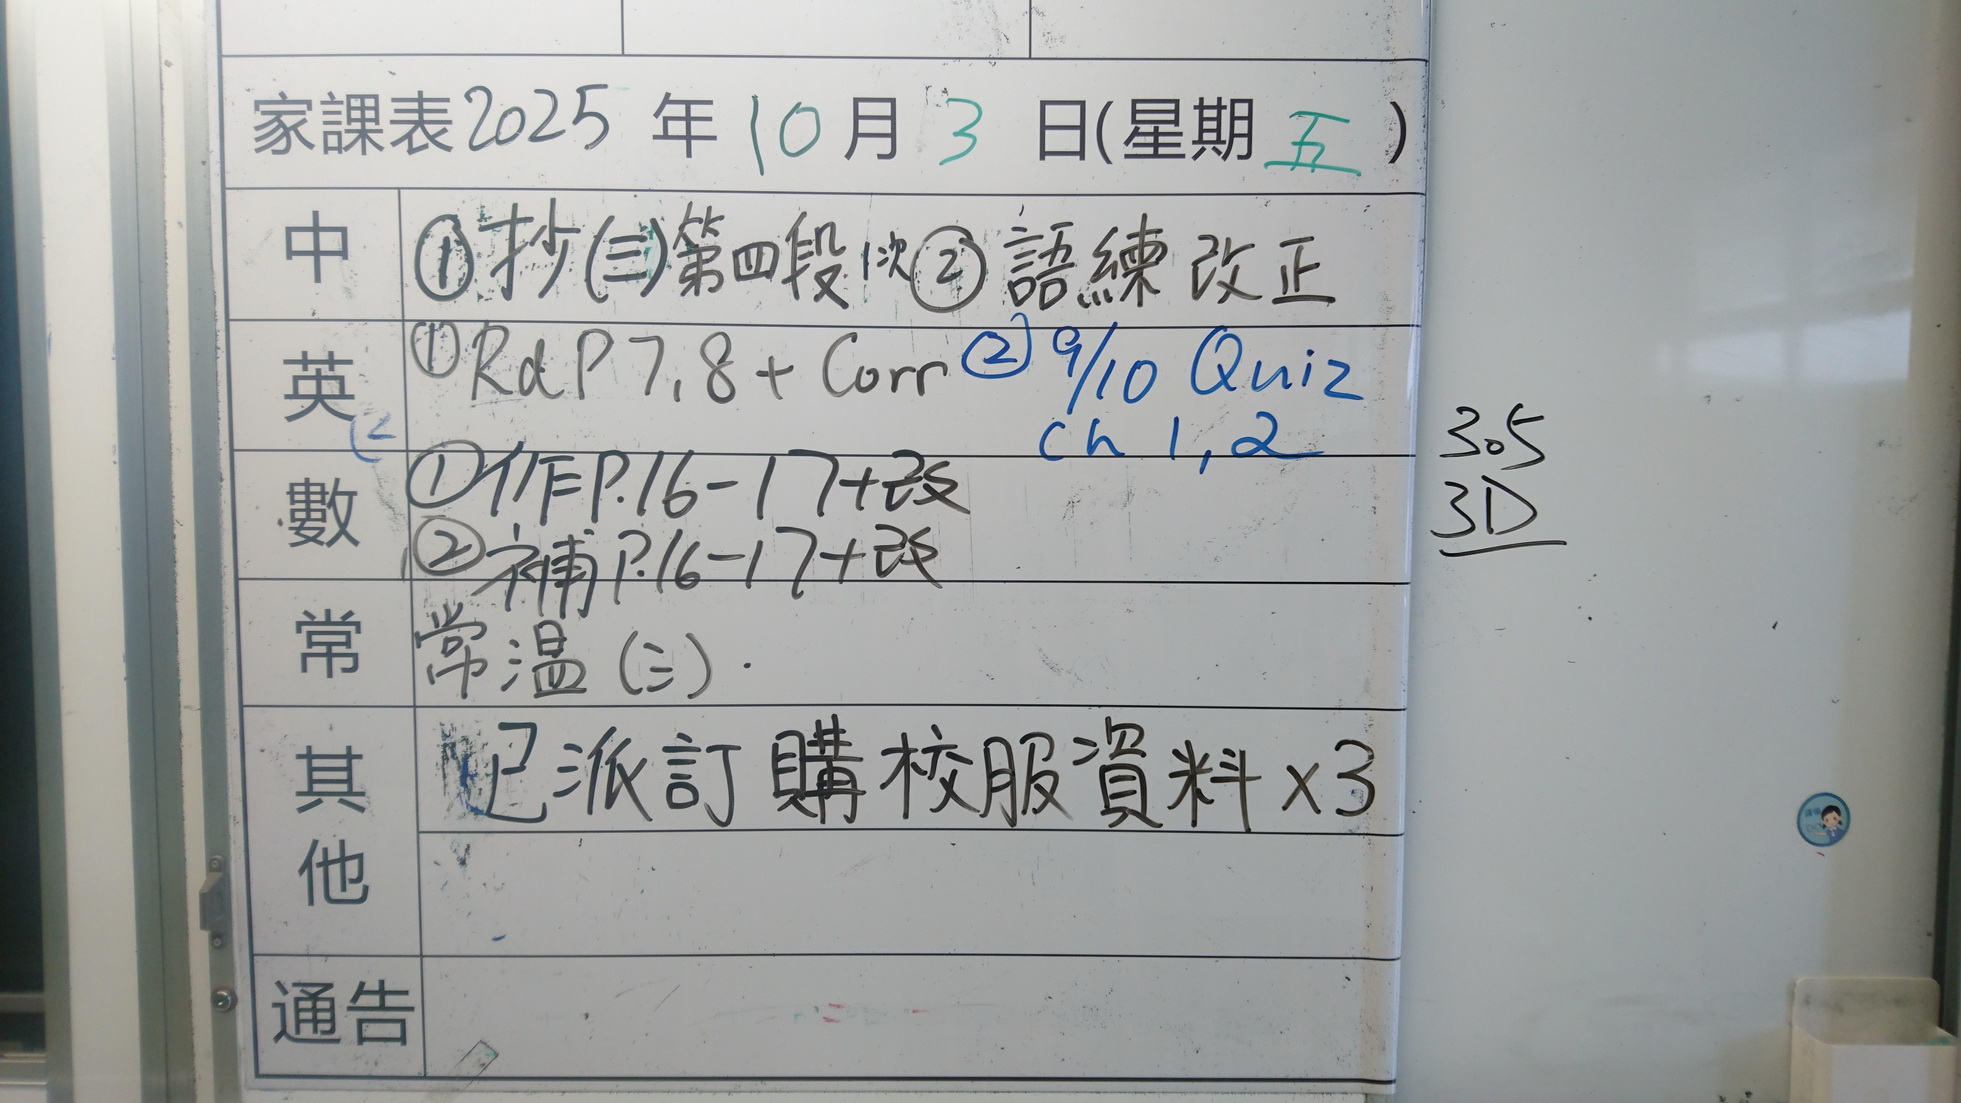 家課表2025年10月3日(星期五)
中 ①抄(三)第四段1次②語練改正
英 ①Rd P7,8+Corr ②9/10 Quiz
ch 1,2
數 ①作P.16-17+改
②補P.16-17+改
常 常溫(三).
其他 已派訂購校服資料x3
通告
305
3D